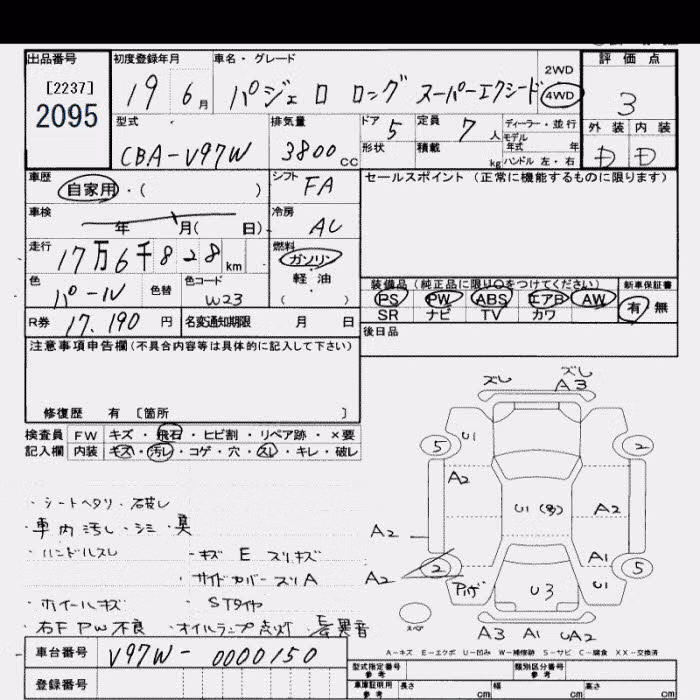 出品番号 初度登録年月 車名・グレード 評価点
[2237] 19 6月 パジェロ ロング スーパーエクシード 2WD 4WD 3
2095
型式 排気量 ドア 定員 ディーラー・並行 外装 内装
CBA-V97W 3800cc 5 7人 モデル年式 年 D D
形状 積載 kg ハンドル 左・右
車歴 自家用・( ) シフト FA セールスポイント (正常に機能するものに限ります)
車検 年 月( 日) 冷房 AC
走行 17万6千828km 燃料 ガソリン 軽油 ( )
色 パール 色替 色コード W23
装備品 (純正品に限り○をつけてください) 新車保証書
PS PW ABS エアB AW 有 無
SR ナビ TV カワ
R券 17.190円 名変通知期限 月 日 後日品
注意事項申告欄(不具合内容等は具体的に記入して下さい)
修復歴 有 [箇所 ]
検査員 FW キズ・飛石・ヒビ割・リペア跡・×要
記入欄 内装 キズ・汚レ・コゲ・穴・スレ・キレ・破レ
・シートヘタリ・破レ
・車内汚レ・シミ・臭
・ハンドルスレ ・キズ E スリキズ
・サイドカバースリA
・ホイールキズ ・STタイヤ
・右F PW不良 ・オイルランプ点灯 異音
ズレ ズレ A3
5 U1 2
A2 U1(多) A2
A2
A2 2 A1 5
U3 U1
スペア A3 A1 UA2
A-キズ E-エクボ U-凹み W-補修跡 S-サビ C-腐食 XX-交換済
車台番号 V97W-0000150
登録番号
型式指定番号 参考 類別区分番号 参考
車庫証明用 参考 長さ cm 幅 cm 高さ cm